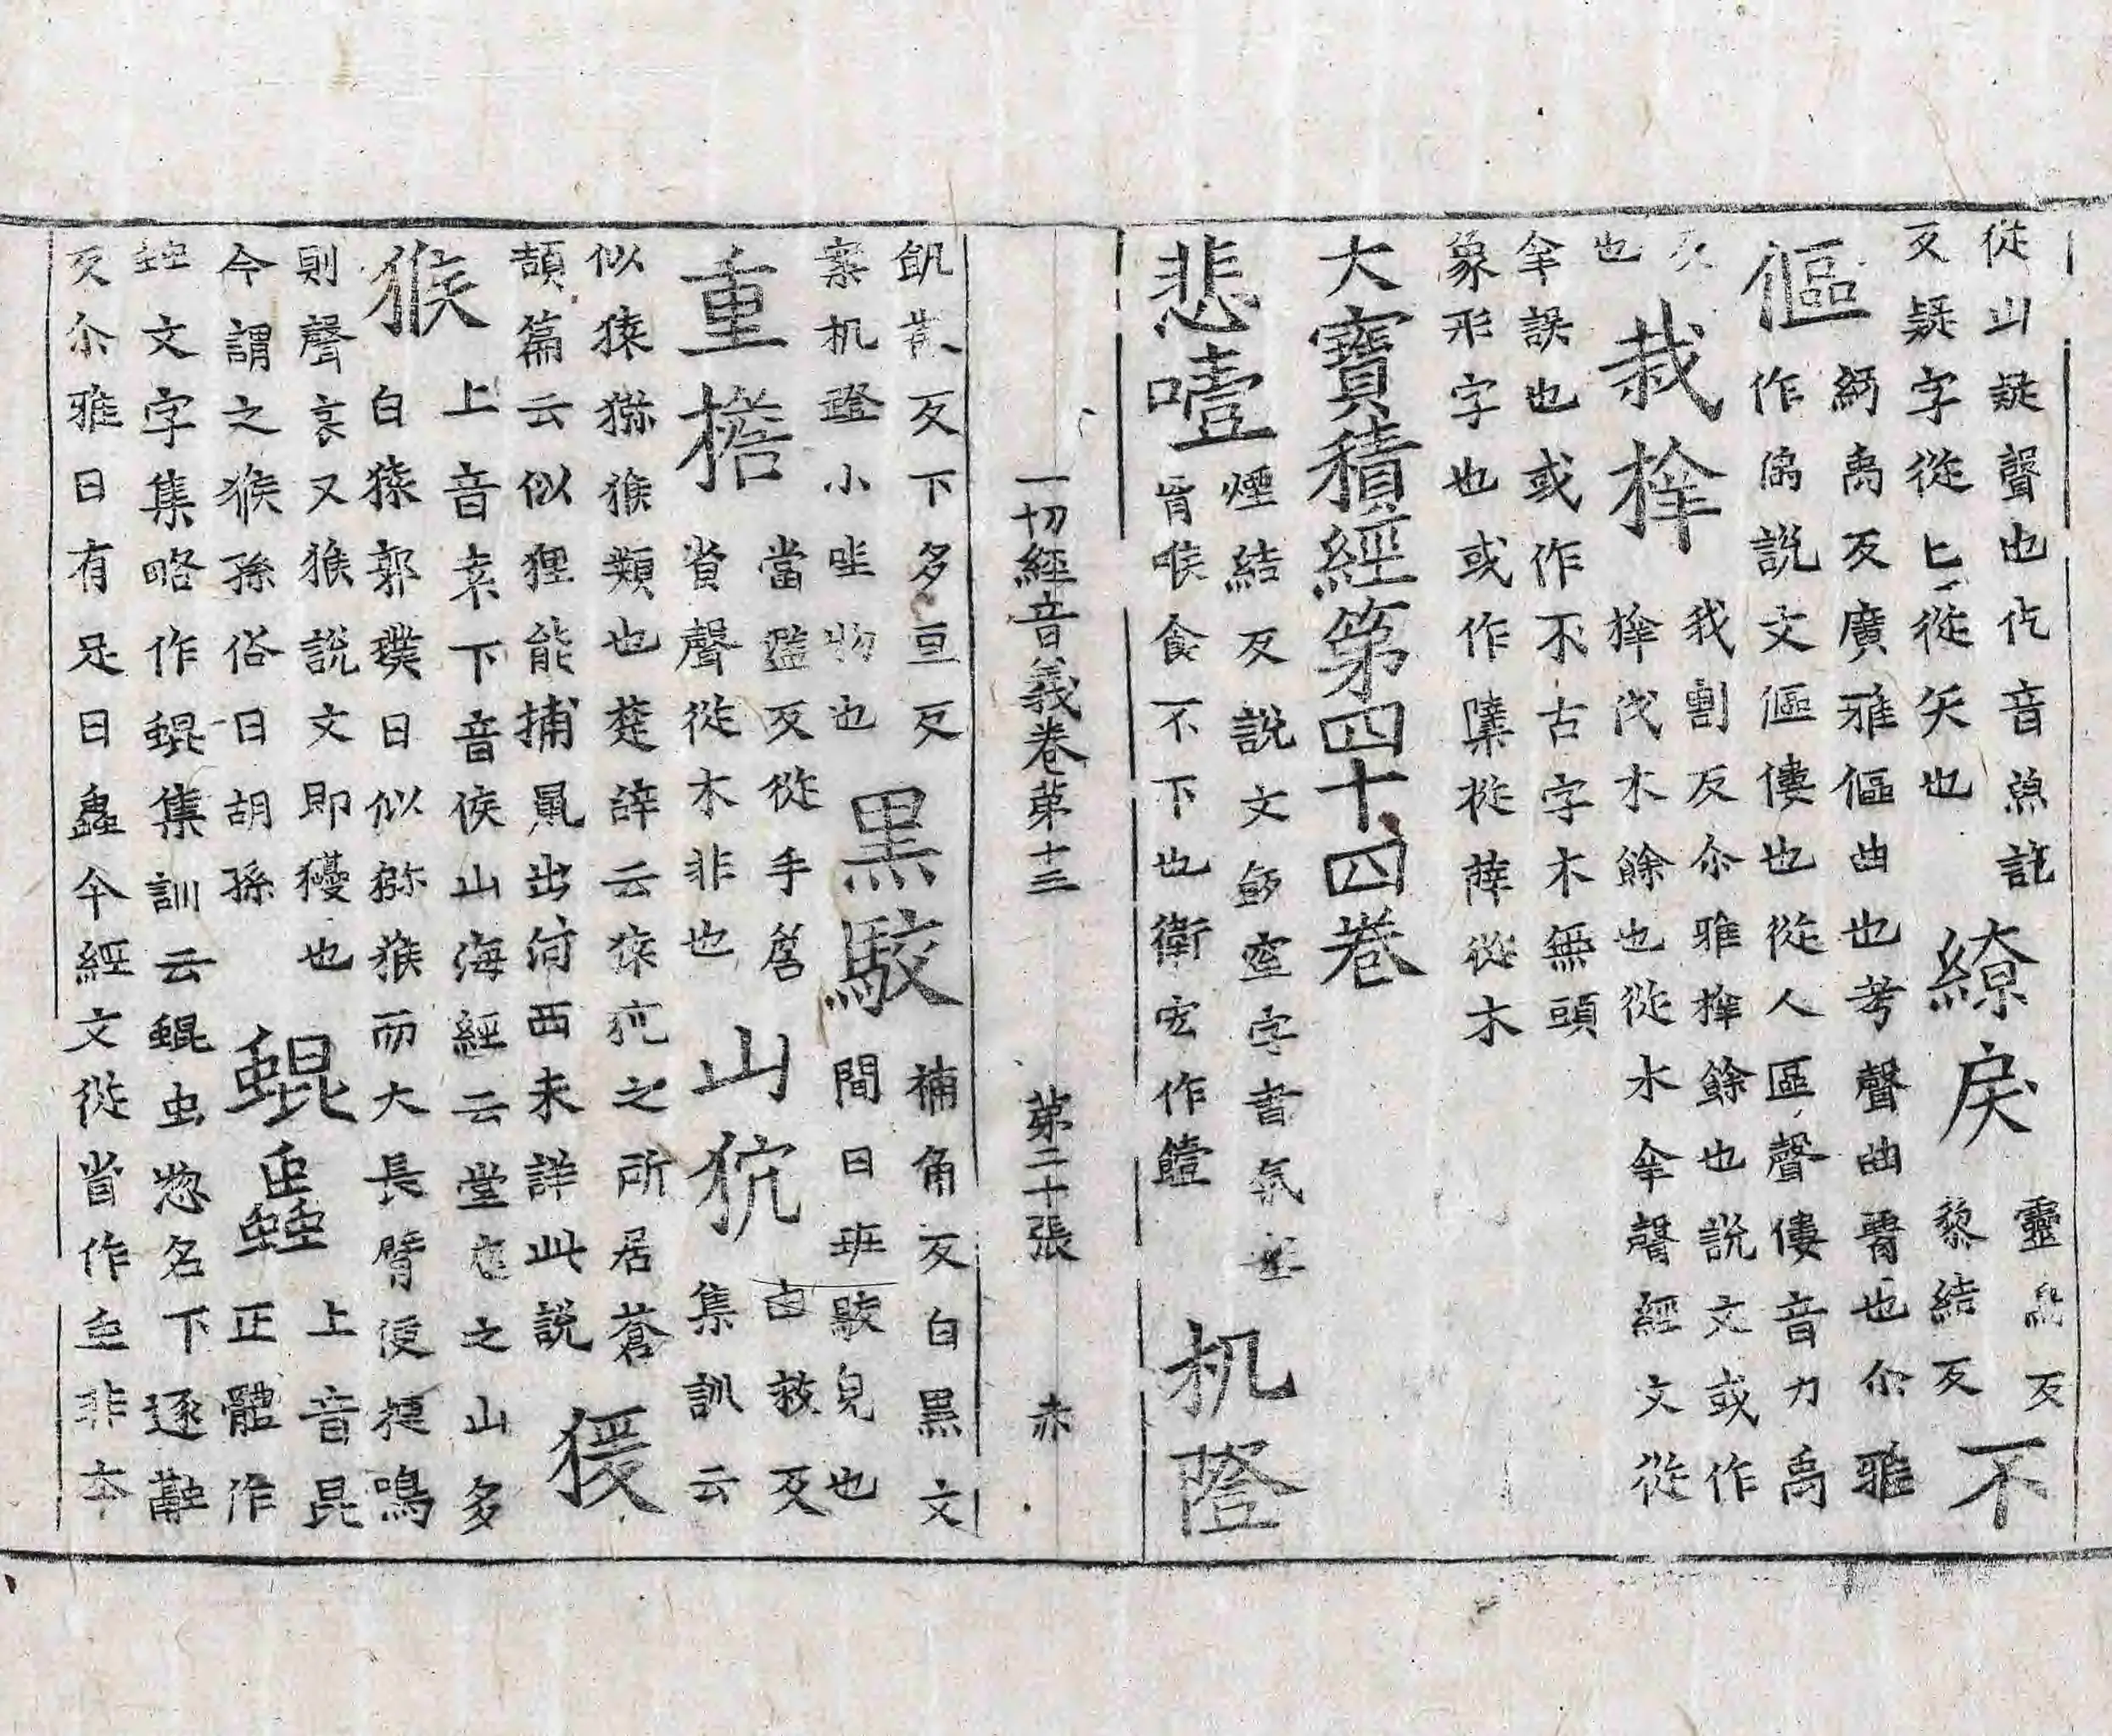 從止疑聲也仡音魚訖
反疑字從匕從矢也
繚戾
靈鳥反
黎結反
不
傴
紆禹反廣雅傴曲也考聲曲脊也尒雅
作傴說文傴僂也從人區聲僂音力禹
反
也
栽枿
我割反尒雅枿餘也說文或作
枿伐木餘也從木𠦪聲經文從
𠦪誤也或作不古字木無頭
象形字也或作㰔從薛從木
大寶積經第四十四卷
悲噎
煙結反說文飯窒字書氣塞
胷喉食不下也衛宏作饐
机隥
一切經音義卷第十三
第二十張
赤
飢㡭反下多亘反
案机隥小坐物也
黑駮
補角反白黑文
間曰班駮皃也
重擔
當濫反從手詹
省聲從木非也
山狖
由救反
集訓云
似猿獼猴類也楚辭云猿狖之所居蒼
頡篇云似狸能捕鼠出河西未詳此說
猨
猴
上音袁下音侯山海經云堂庭之山多
白猿郭璞曰似獼猴而大長臂便捷鳴
則聲哀又猴說文即玃也
今謂之猴孫俗曰胡孫
蜫䖝
上音昆
正體作
䖵文字集略作蜫集訓云蜫虫惣名下逐融
反尒雅曰有足曰蟲今經文從省作䖝非本